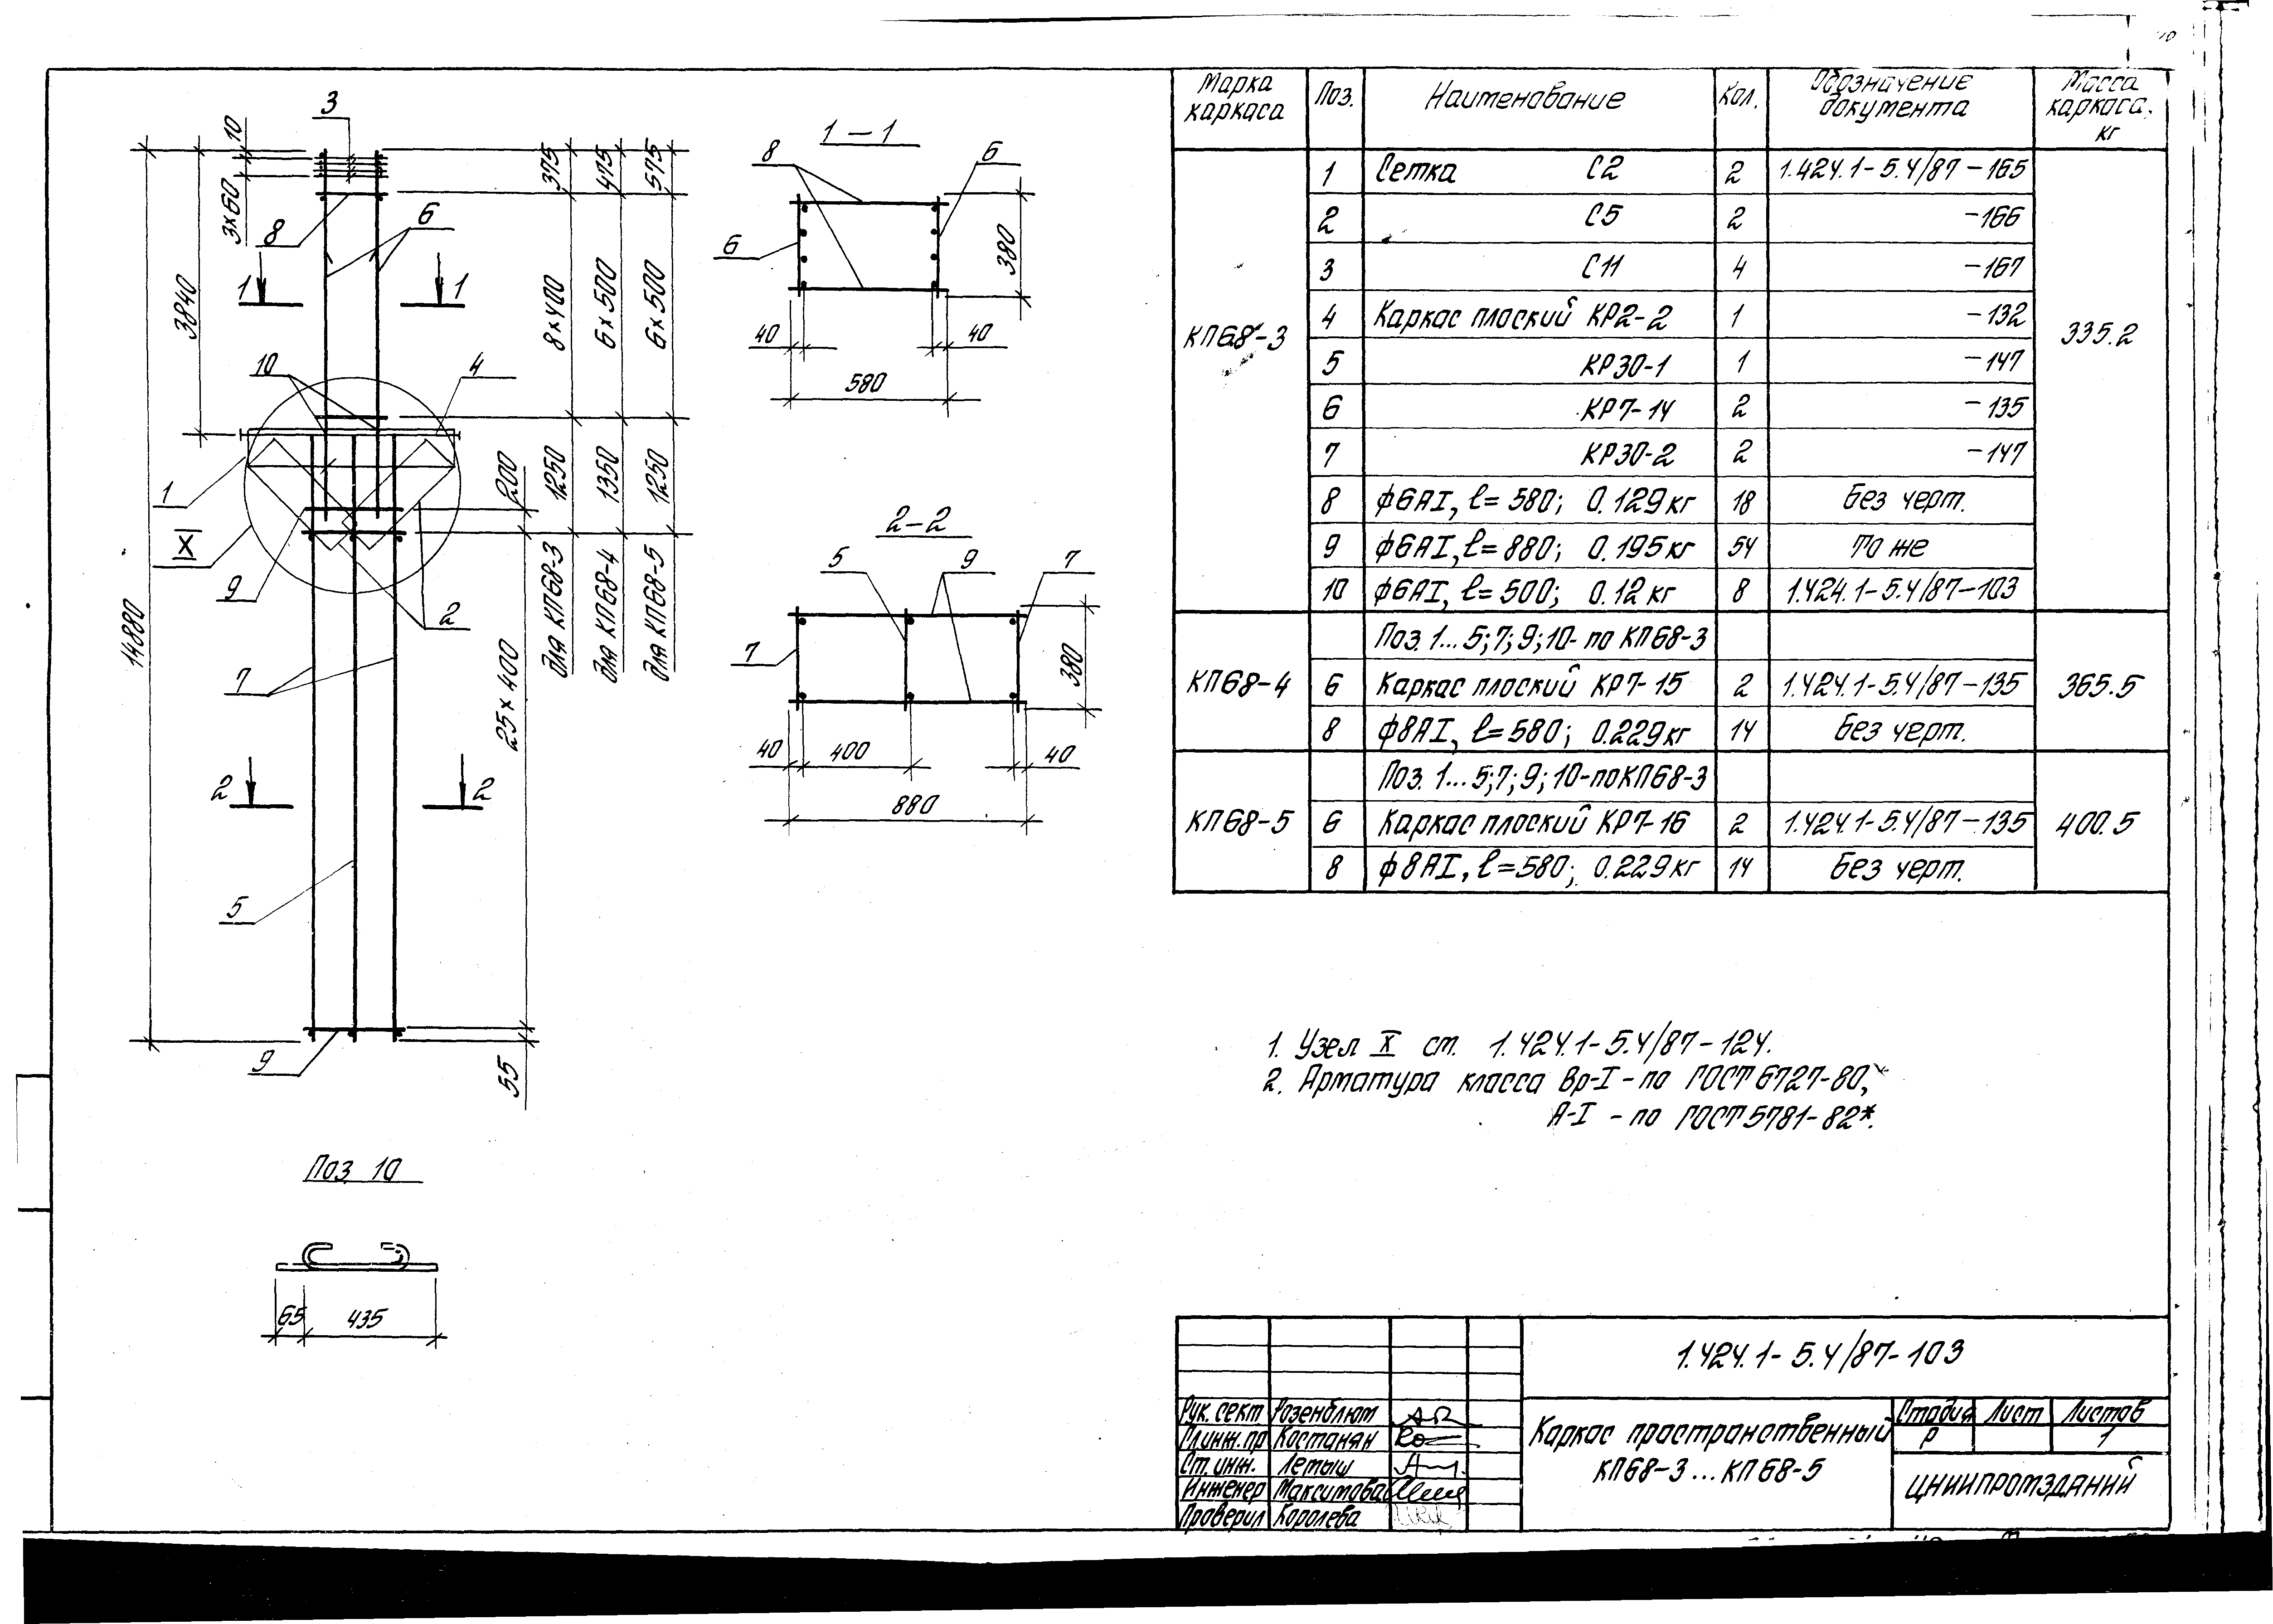 Марка каркаса | Поз. | Наименование | Кол. | Обозначение документа | Масса каркаса, кг
КП68-3 | 1 | Сетка С2 | 2 | 1.424.1-5.4/87-165 | 335.2
2 | С5 | 2 | -166
3 | С11 | 4 | -167
4 | Каркас плоский КР2-2 | 1 | -132
5 | КР30-1 | 1 | -147
6 | КР7-14 | 2 | -135
7 | КР30-2 | 2 | -147
8 | ф6АI, ℓ=580; 0.129кг | 18 | Без черт.
9 | ф6АI, ℓ=880; 0.195кг | 54 | То же
10 | ф6АI, ℓ=500; 0.12кг | 8 | 1.424.1-5.4/87-103
Поз. 1...5;7;9;10- по КП68-3
КП68-4 | 6 | Каркас плоский КР7-15 | 2 | 1.424.1-5.4/87-135 | 365.5
8 | ф8АI, ℓ=580; 0.229кг | 14 | Без черт.
Поз. 1...5;7;9;10-по КП68-3
КП68-5 | 6 | Каркас плоский КР7-16 | 2 | 1.424.1-5.4/87-135 | 400.5
8 | ф8АI, ℓ=580; 0.229кг | 14 | Без черт.
3
10
3×60
8
6
1
1
3840
14880
10
4
1
X
9
2
7
2
2
5
9
375
475
575
8×400
6×500
6×500
200
1250
1350
1250
для КП68-3
для КП68-4
для КП68-5
25×400
55
1-1
8
6
6
380
40
40
580
2-2
5
9
7
7
380
40
400
40
880
Поз. 10
65
435
1. Узел X см. 1.424.1-5.4/87-124.
2. Арматура класса Вр-I-по ГОСТ 6727-80,*
А-I - по ГОСТ 5781-82*.
1.424.1-5.4/87-103
Рук. сект Розенблюм
Гл.инж.пр Костанян
Ст. инж. Летыш
Инженер Максимова
Проверил Королева
Каркас пространственный
КП68-3...КП68-5
Стадия Лист Листов
Р 1
ЦНИИПРОМЗДАНИЙ